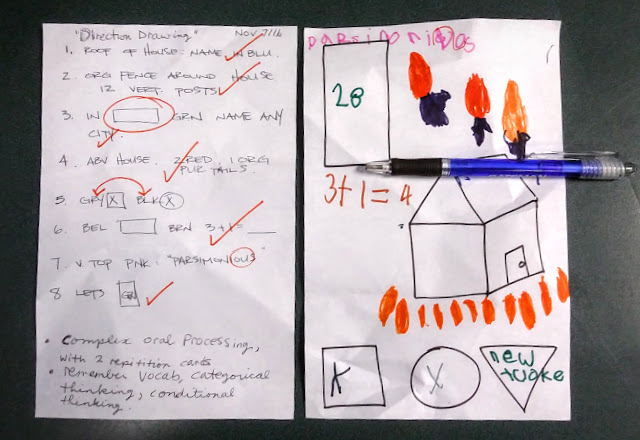 "Direction Drawing" Nov 7/16
1. ROOF OF HOUSE: NAME IN BLU.
2. ORG FENCE AROUND HOUSE
12 VERT. POSTS
3. IN GRN NAME ANY
CITY.
4. ABV HOUSE. 2 RED, 1 ORG
PUR TAILS.
5. GRY X BLK X
6. BEL BRN 3+1=__
7. V TOP PNK: "PARSIMONIOUS"
8 LETS GRN
• Complex oral Processing,
with 2 repitition cards
• remember Vocab, categorical
thinking, conditional
thinking.
parsimonious
28
3+1=4
X
X
new